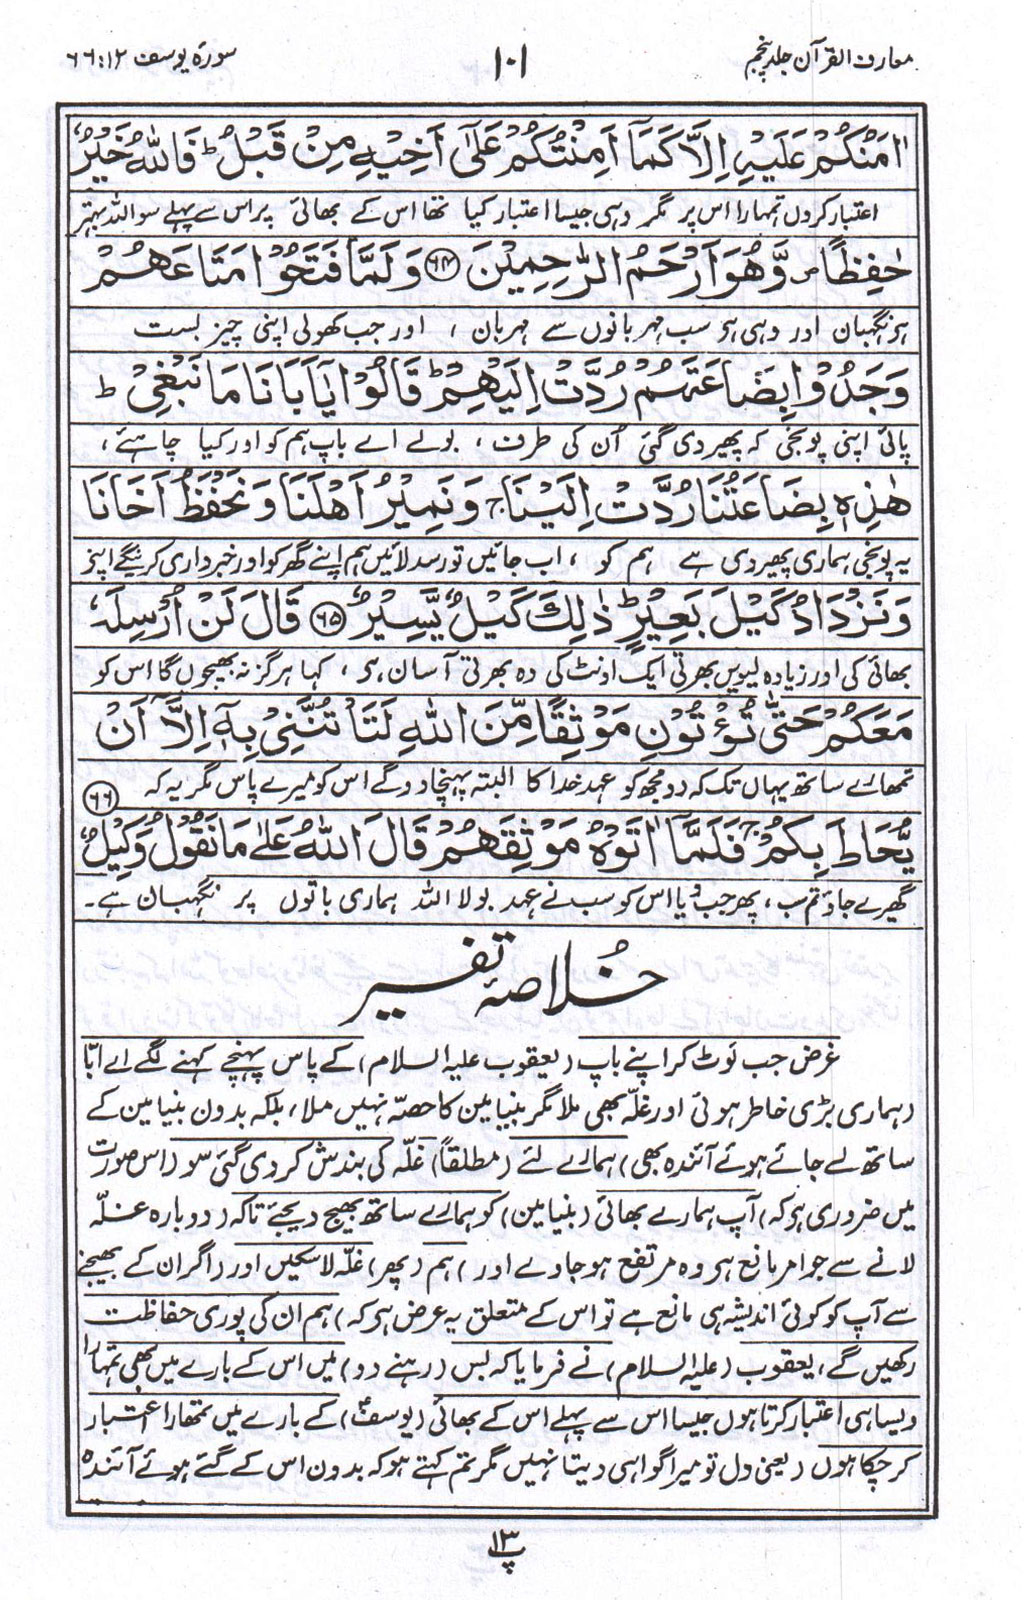 معارف القرآن جلد پنجم
۱۰۱
سورۂ یوسف ۱۲:۶۶
اٰمَنُكُمْ عَلَيْهِ اِلَّا كَمَآ اَمِنْتُكُمْ عَلٰٓى اَخِيْهِ مِنْ قَبْلُ ؕ فَاللّٰهُ خَيْرٌ
اعتبار کروں تمہارا اس پر مگر وہی جیسا اعتبار کیا تھا اس کے بھائی پر اس سے پہلے سو اللہ بہتر
حٰفِظًا ۪ وَّهُوَ اَرْحَمُ الرّٰحِمِيْنَ ﴿۶۴﴾ وَلَمَّا فَتَحُوْا مَتَاعَهُمْ
ہے نگہبان اور وہی ہے سب مہربانوں سے مہربان ، اور جب کھولی اپنی چیز بست
وَجَدُوْا بِضَاعَتَهُمْ رُدَّتْ اِلَيْهِمْ ؕ قَالُوْا يٰٓاَبَانَا مَا نَبْغِيْ ؕ
پائی اپنی پونجی کہ پھیر دی گئی اُن کی طرف ، بولے اے باپ ہم کو اور کیا چاہئے ،
هٰذِهٖ بِضَاعَتُنَا رُدَّتْ اِلَيْنَا ۚ وَنَمِيْرُ اَهْلَنَا وَنَحْفَظُ اَخَانَا
یہ پونجی ہماری پھیر دی ہے ہم کو ، اب جائیں تو رسد لائیں ہم اپنے گھر کو اور خبرداری کرینگے اپنے
وَنَزْدَادُ كَيْلَ بَعِيْرٍ ؕ ذٰلِكَ كَيْلٌ يَّسِيْرٌ ﴿۶۵﴾ قَالَ لَنْ اُرْسِلَهٗ
بھائی کی اور زیادہ لیویں بھرتی ایک اونٹ کی وہ بھرتی آسان ہے ، کہا ہرگز نہ بھیجوں گا اس کو
مَعَكُمْ حَتّٰى تُؤْتُوْنِ مَوْثِقًا مِّنَ اللّٰهِ لَتَاْتُنَّنِيْ بِهٖٓ اِلَّآ اَنْ
تمھارے ساتھ یہاں تک کہ دو مجھ کو عہد خدا کا البتہ پہنچا دو گے اس کو میرے پاس مگر یہ کہ
يُّحَاطَ بِكُمْ ۚ فَلَمَّآ اٰتَوْهُ مَوْثِقَهُمْ قَالَ اللّٰهُ عَلٰى مَا نَقُوْلُ وَكِيْلٌ ﴿۶۶﴾
گھیرے جاؤ تم سب ، پھر جب دیا اس کو سب نے عہد بولا اللہ ہماری باتوں پر نگہبان ہے۔
خلاصۂ تفسیر
غرض جب لوٹ کر اپنے باپ (یعقوب علیہ السلام) کے پاس پہنچے کہنے لگے اے ابا
(ہماری بڑی خاطر ہوئی اور غلّہ بھی ملا مگر بنیامین کا حصّہ نہیں ملا، بلکہ بدون بنیامین کے
ساتھ لے جائے ہوئے آئندہ بھی) ہمارے لئے (مطلقاً) غلّہ کی بندش کر دی گئی سو (اس صورت
میں ضروری ہے کہ) آپ ہمارے بھائی (بنیامین) کو ہمارے ساتھ بھیج دیجئے تاکہ (دوبارہ غلّہ
لانے سے جو امر مانع ہے وہ مرتفع ہو جاوے اور) ہم (پھر) غلّہ لا سکیں اور (اگر ان کے بھیجنے
سے آپ کو کوئی اندیشہ ہی مانع ہے تو اس کے متعلق یہ عرض ہے کہ) ہم ان کی پوری حفاظت
رکھیں گے، یعقوب (علیہ السلام) نے فرمایا کہ بس (رہنے دو) میں اس کے بارے میں بھی تمہارا
ویسا ہی اعتبار کرتا ہوں جیسا اس سے پہلے اس کے بھائی (یوسفؑ) کے بارے میں تمھارا اعتبار
کر چکا ہوں (یعنی دل تو میرا گواہی دیتا نہیں مگر تم کہتے ہو کہ بدون اس کے گئے ہوئے آئندہ
پ ۱۳